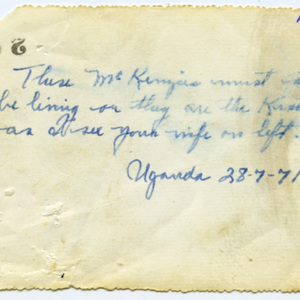 These McKenzies must
be living or they are the
as I see your wife on left.
Uganda 28-7-71